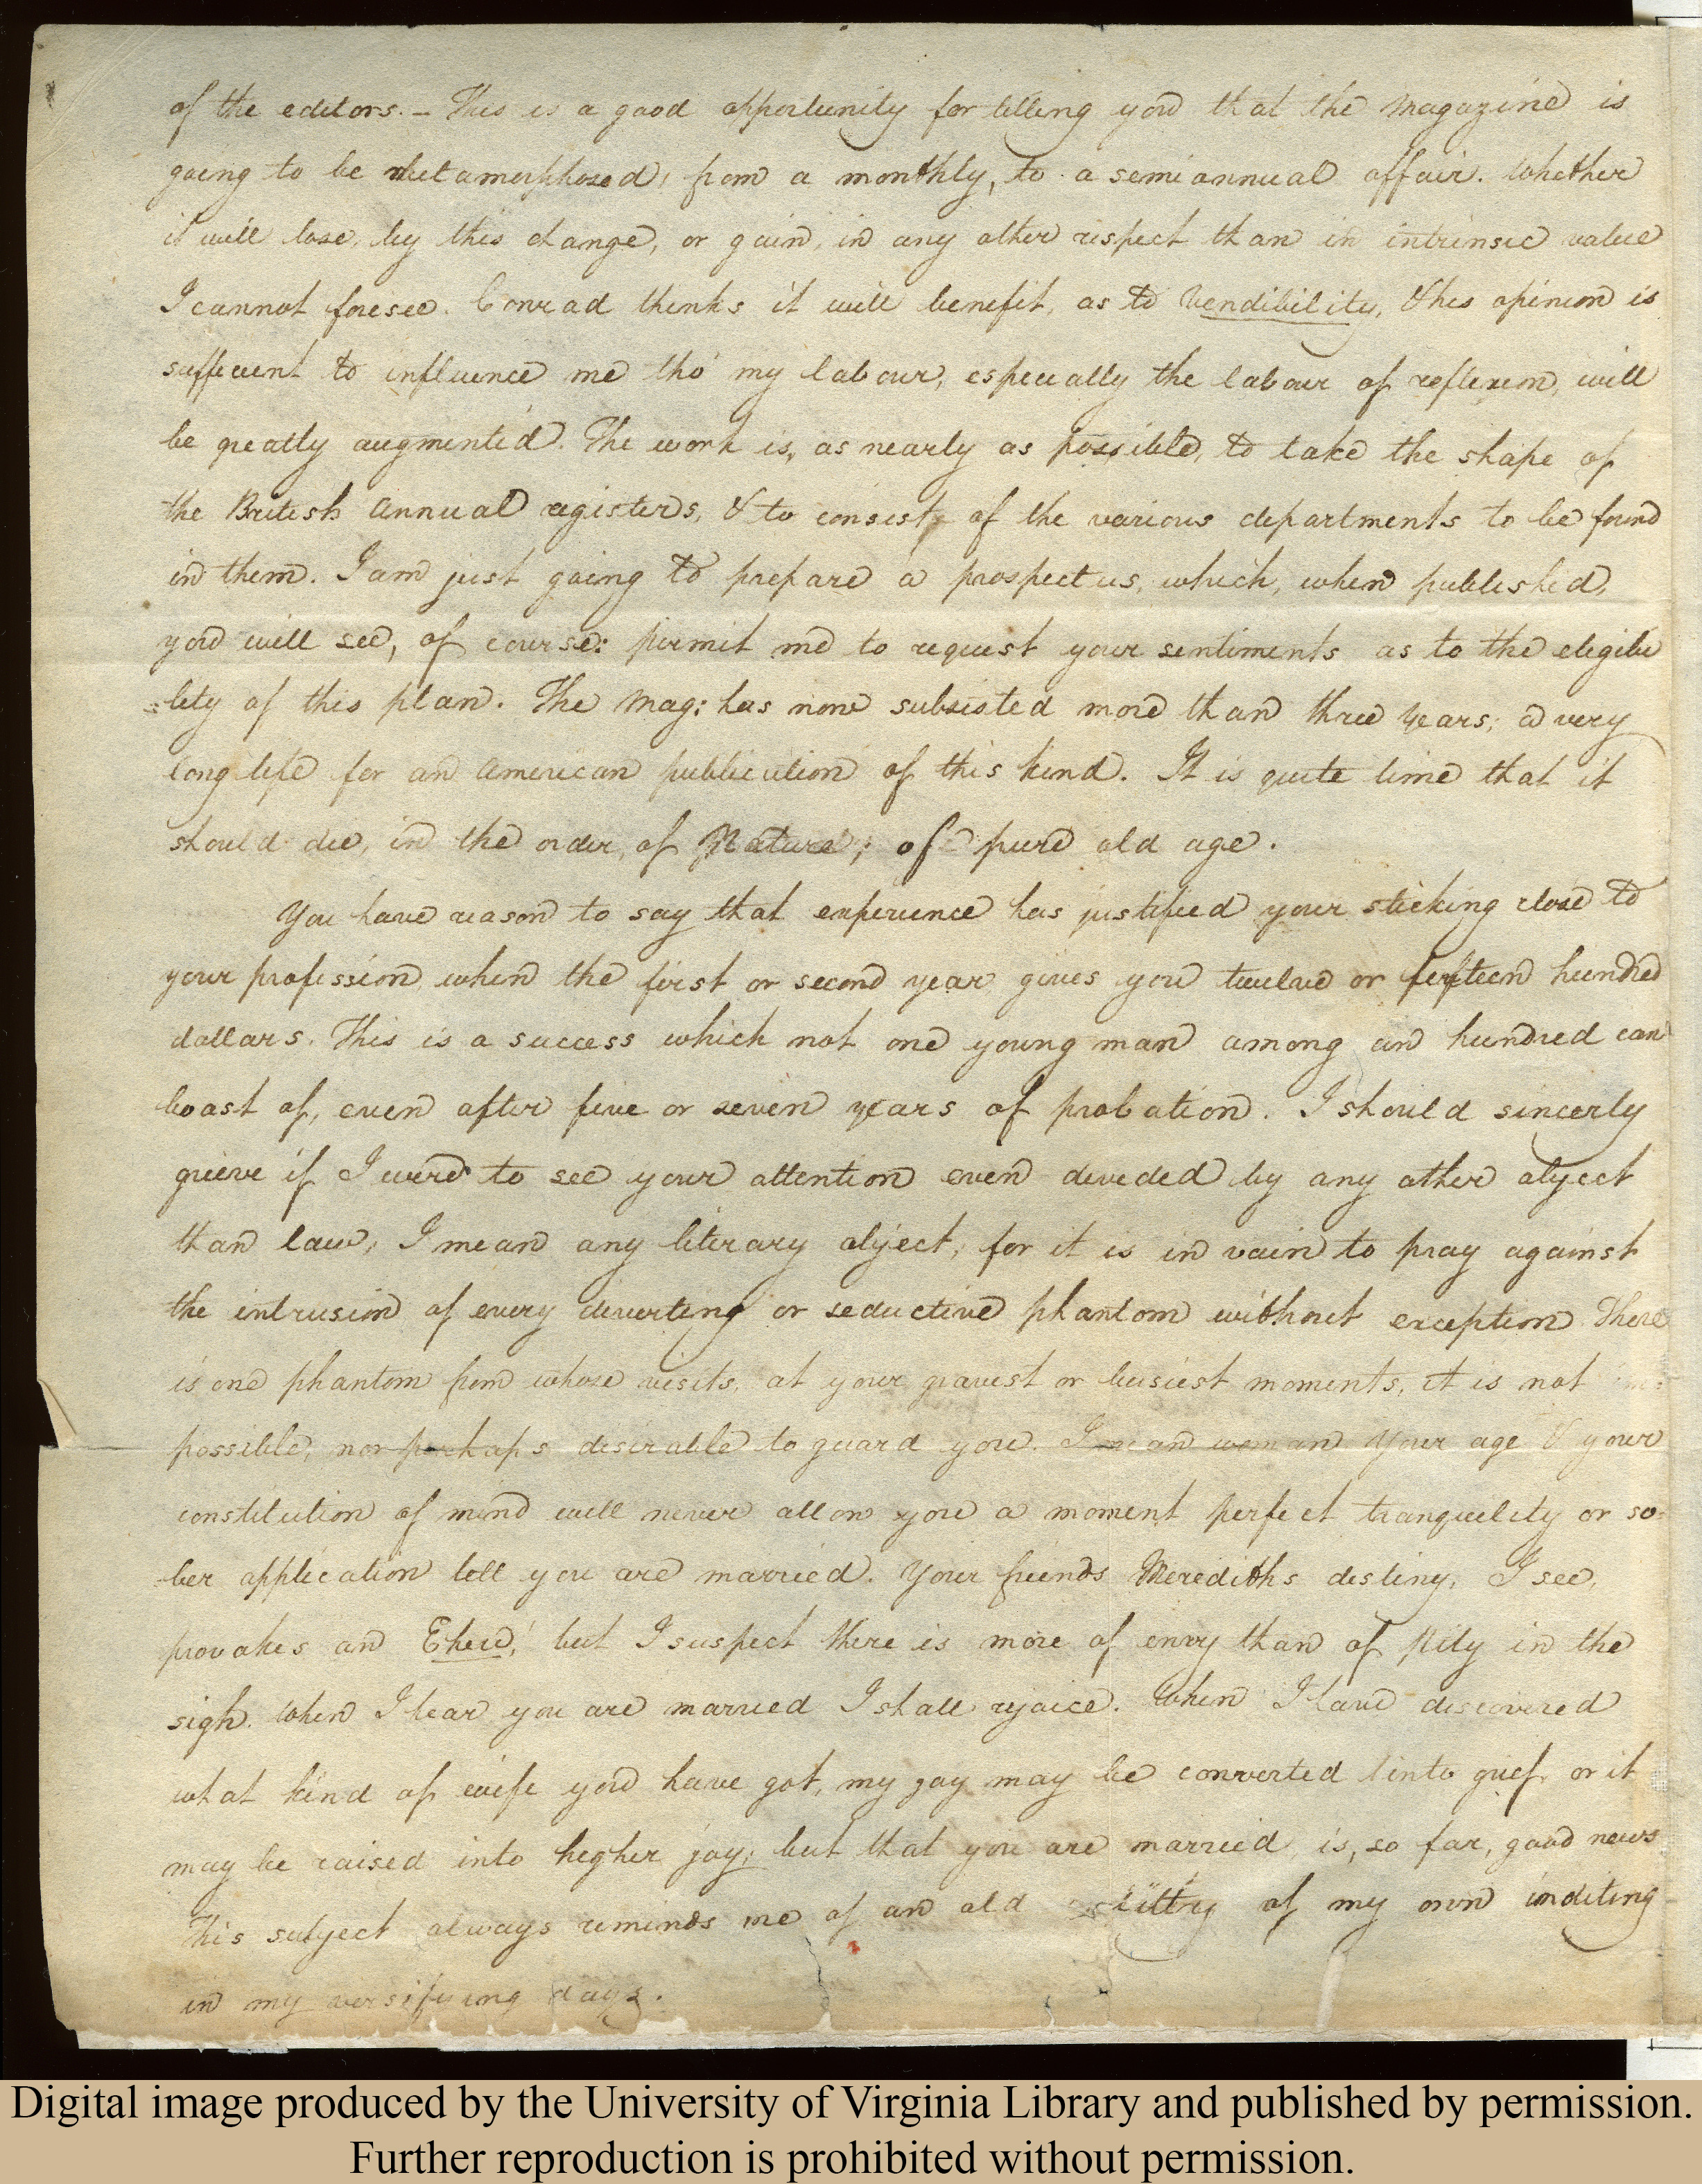 of the editors. – This is a good opportunity for telling you that the Magazine is
going to be metamorphozed, from a monthly, to a semiannual affair. Whether
it will lose, by this change, or gain, in any other respect than in intrinsic value
I cannot foresee. Conrad thinks it will benefit, as to Vendibility, & his opinion is
sufficient to influence me tho' my labour, especially the labour of reflexion, will
be greatly augmented. The work is, as nearly as possible, to take the shape of
the British Annual registers, & to consist of the various departments to be found
in them. I am just going to prepare a prospectus, which, when published,
you will see, of course: permit me to request your sentiments as to the eligibi
=lity of this plan. The Mag: has now subsisted more than three years; a very
long life for an American publication of this kind. It is quite time that it
should die, in the order of Nature; of pure old age.
You have reason to say that experience has justified your sticking close to
your profession when the first or second year gives you twelve or fifteen hundred
dollars. This is a success which not one young man among an hundred can
boast of, even after five or seven years of probation. I should sincerly
grieve if I were to see your attention even divided by any other object
than law; I mean any literary object, for it is in vain to pray against
the intrusion of every diverting or seductive phantom without exception There
is one phantom from whose visits, at your gravest or busiest moments, it is not
possible, nor perhaps desirable to guard you. I mean woman Your age & your
constitution of mind will never allow you a moment perfect tranquility or so=
=ber application till you are married. Your friends Merediths destiny, I see,
provokes an Eheu! but I suspect there is more of envy than of pity in the
sigh. When I hear you are married I shall rejoice. When I have discovered
what kind of wife you have got, my joy may be converted into grief or it
may be raised into higher joy; but that you are married is, so far, good news
This subject always reminds me of an old of my own inditing
in my versifying days.
Digital image produced by the University of Virginia Library and published by permission.
Further reproduction is prohibited without permission.